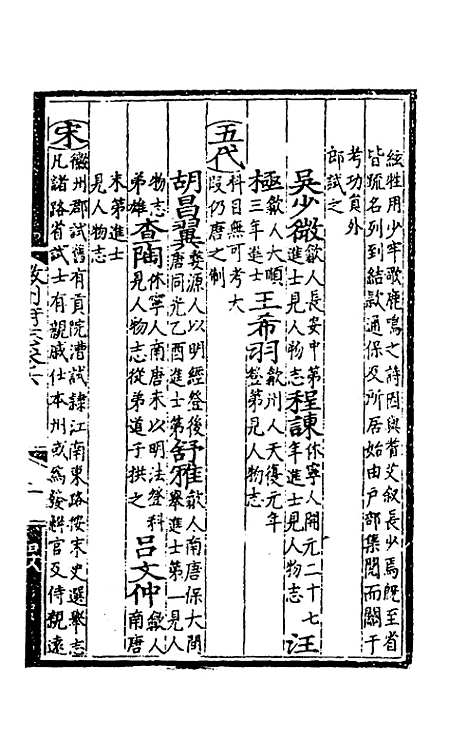 絃牲用少牢歌鹿鳴之詩因與耆艾叙長少焉旣至省
皆疏名列到結款通保及所居始由戸部集閱而關于
考功員外
郎試之
吳少微歙人長安中第進士見人物志程諫休寧人開元二十七年進士見人物志汪
極歙人大順三年進士王希羽歙州人天復元年登第見人物志
五代科目無可考大段仍唐之制
胡昌翼婺源人以明經登後唐同光乙酉進士第舒雅歙人南唐保大間舉進士第一見人
物志查陶休寧人南唐末以明法登科見人物志從弟道子拱之呂文仲歙人南唐
弟雄
末第進士
見人物志
宋徽州郡試舊有貢院漕試隸江南東路按宋史選舉志
凡諸路省試士有親戚仕本州或爲發解官及侍親遠